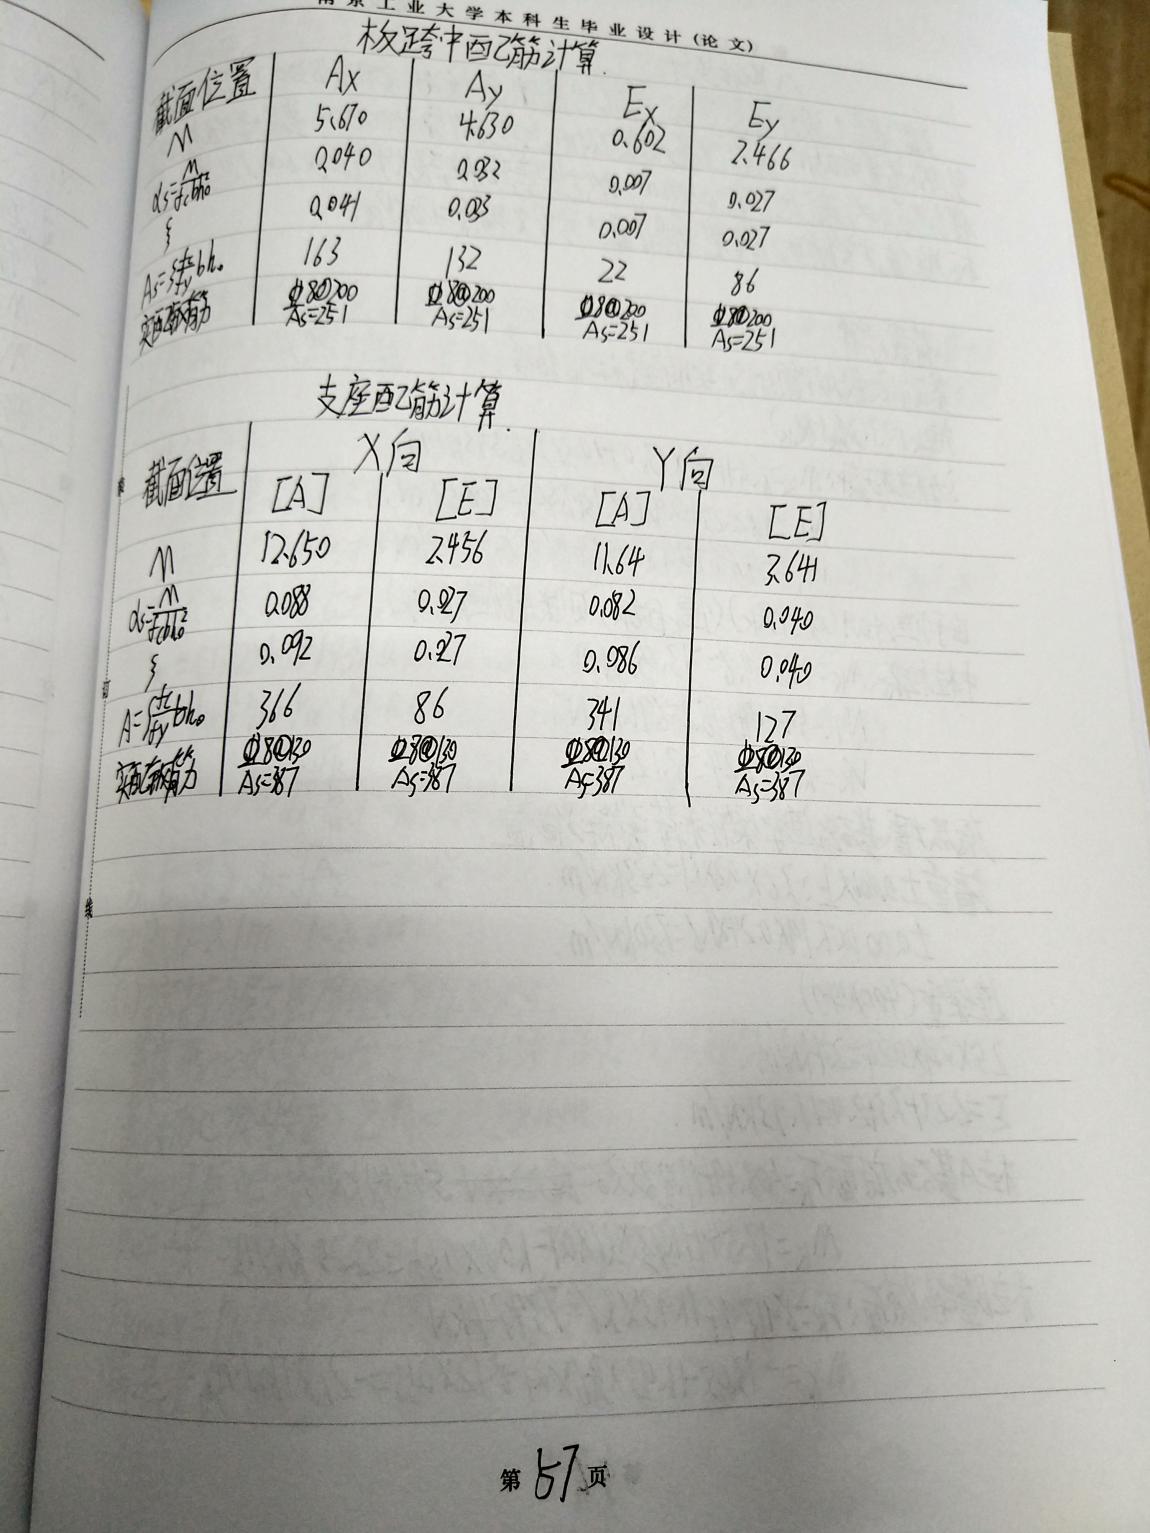 南京工业大学本科生毕业设计(论文)
板跨中配筋计算.
截面位置 Ax Ay Ex Ey
M 5.670 4.630 0.602 2.466
αs=M/fcbh₀² 0.040 0.032 0.007 0.027
ξ 0.041 0.033 0.007 0.027
As=ξfc/fy bh₀ 163 132 22 86
实配钢筋 Φ8@200 Φ8@200 Φ8@200 Φ8@200
As=251 As=251 As=251 As=251
支座配筋计算.
截面位置 X向 Y向
[A] [E] [A] [E]
M 12.650 2.456 11.64 3.641
αs=M/fcbh₀² 0.088 0.027 0.082 0.040
ξ 0.092 0.027 0.086 0.040
A=ξfc/fy bh₀ 366 86 341 127
实配钢筋 Φ8@130 Φ8@130 Φ8@130 Φ8@130
As=387 As=387 As=387 As=387
订
线
第57页